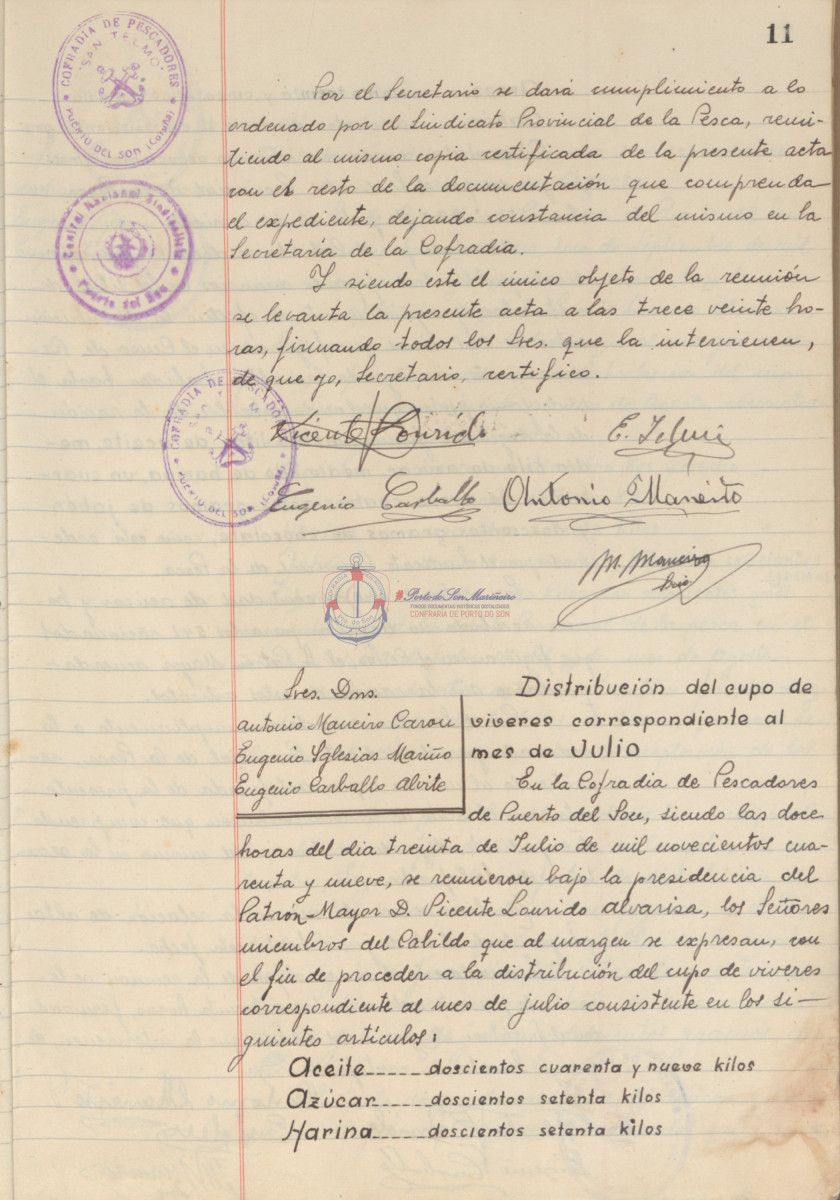 11
COFRADIA DE PESCADORES
"SAN TELMO"
PUERTO DEL SON (Coruña)
Por el Secretario se dará cumplimiento a lo
ordenado por el Sindicato Provincial de la Pesca, remi-
tiendo al mismo copia certificada de la presente acta
con el resto de la documentación que comprenda
el expediente, dejando constancia del mismo en la
Secretaría de la Cofradia.
Central Nacional Sindicalista
Puerto del Son
Y siendo este el único objeto de la reunión
se levanta la presente acta a las trece veinte ho-
ras, firmando todos los Sres. que la intervienen,
de que yo, Secretario, certifico.
COFRADIA DE PESCADORES
PUERTO DEL SON (Coruña)
Vicente Lourido
Eugenio Carballo Antonio Maneiro
M. Maneiro
Porto do Son Mariñeiro
FONDOS DOCUMENTAIS HISTÓRICOS DIXITALIZADOS
CONFRARÍA DE PORTO DO SON
Sres. Dns.
Antonio Maneiro Carou
Eugenio Yglesias Mariño
Eugenio Carballo Alvite
Distribución del cupo de
viveres correspondiente al
mes de Julio
En la Cofradia de Pescadores
de Puerto del Son, siendo las doce
horas del dia treinta de Julio de mil novecientos cua-
renta y nueve, se reunieron bajo la presidencia del
Patrón-Mayor D. Vicente Lourido Alvarisa, los Señores
miembros del Cabildo que al margen se expresan, con
el fin de proceder a la distribución del cupo de viveres
correspondiente al mes de julio consistente en los si-
guientes artículos:
Aceite______doscientos cuarenta y nueve kilos
Azúcar______doscientos setenta kilos
Harina______doscientos setenta kilos